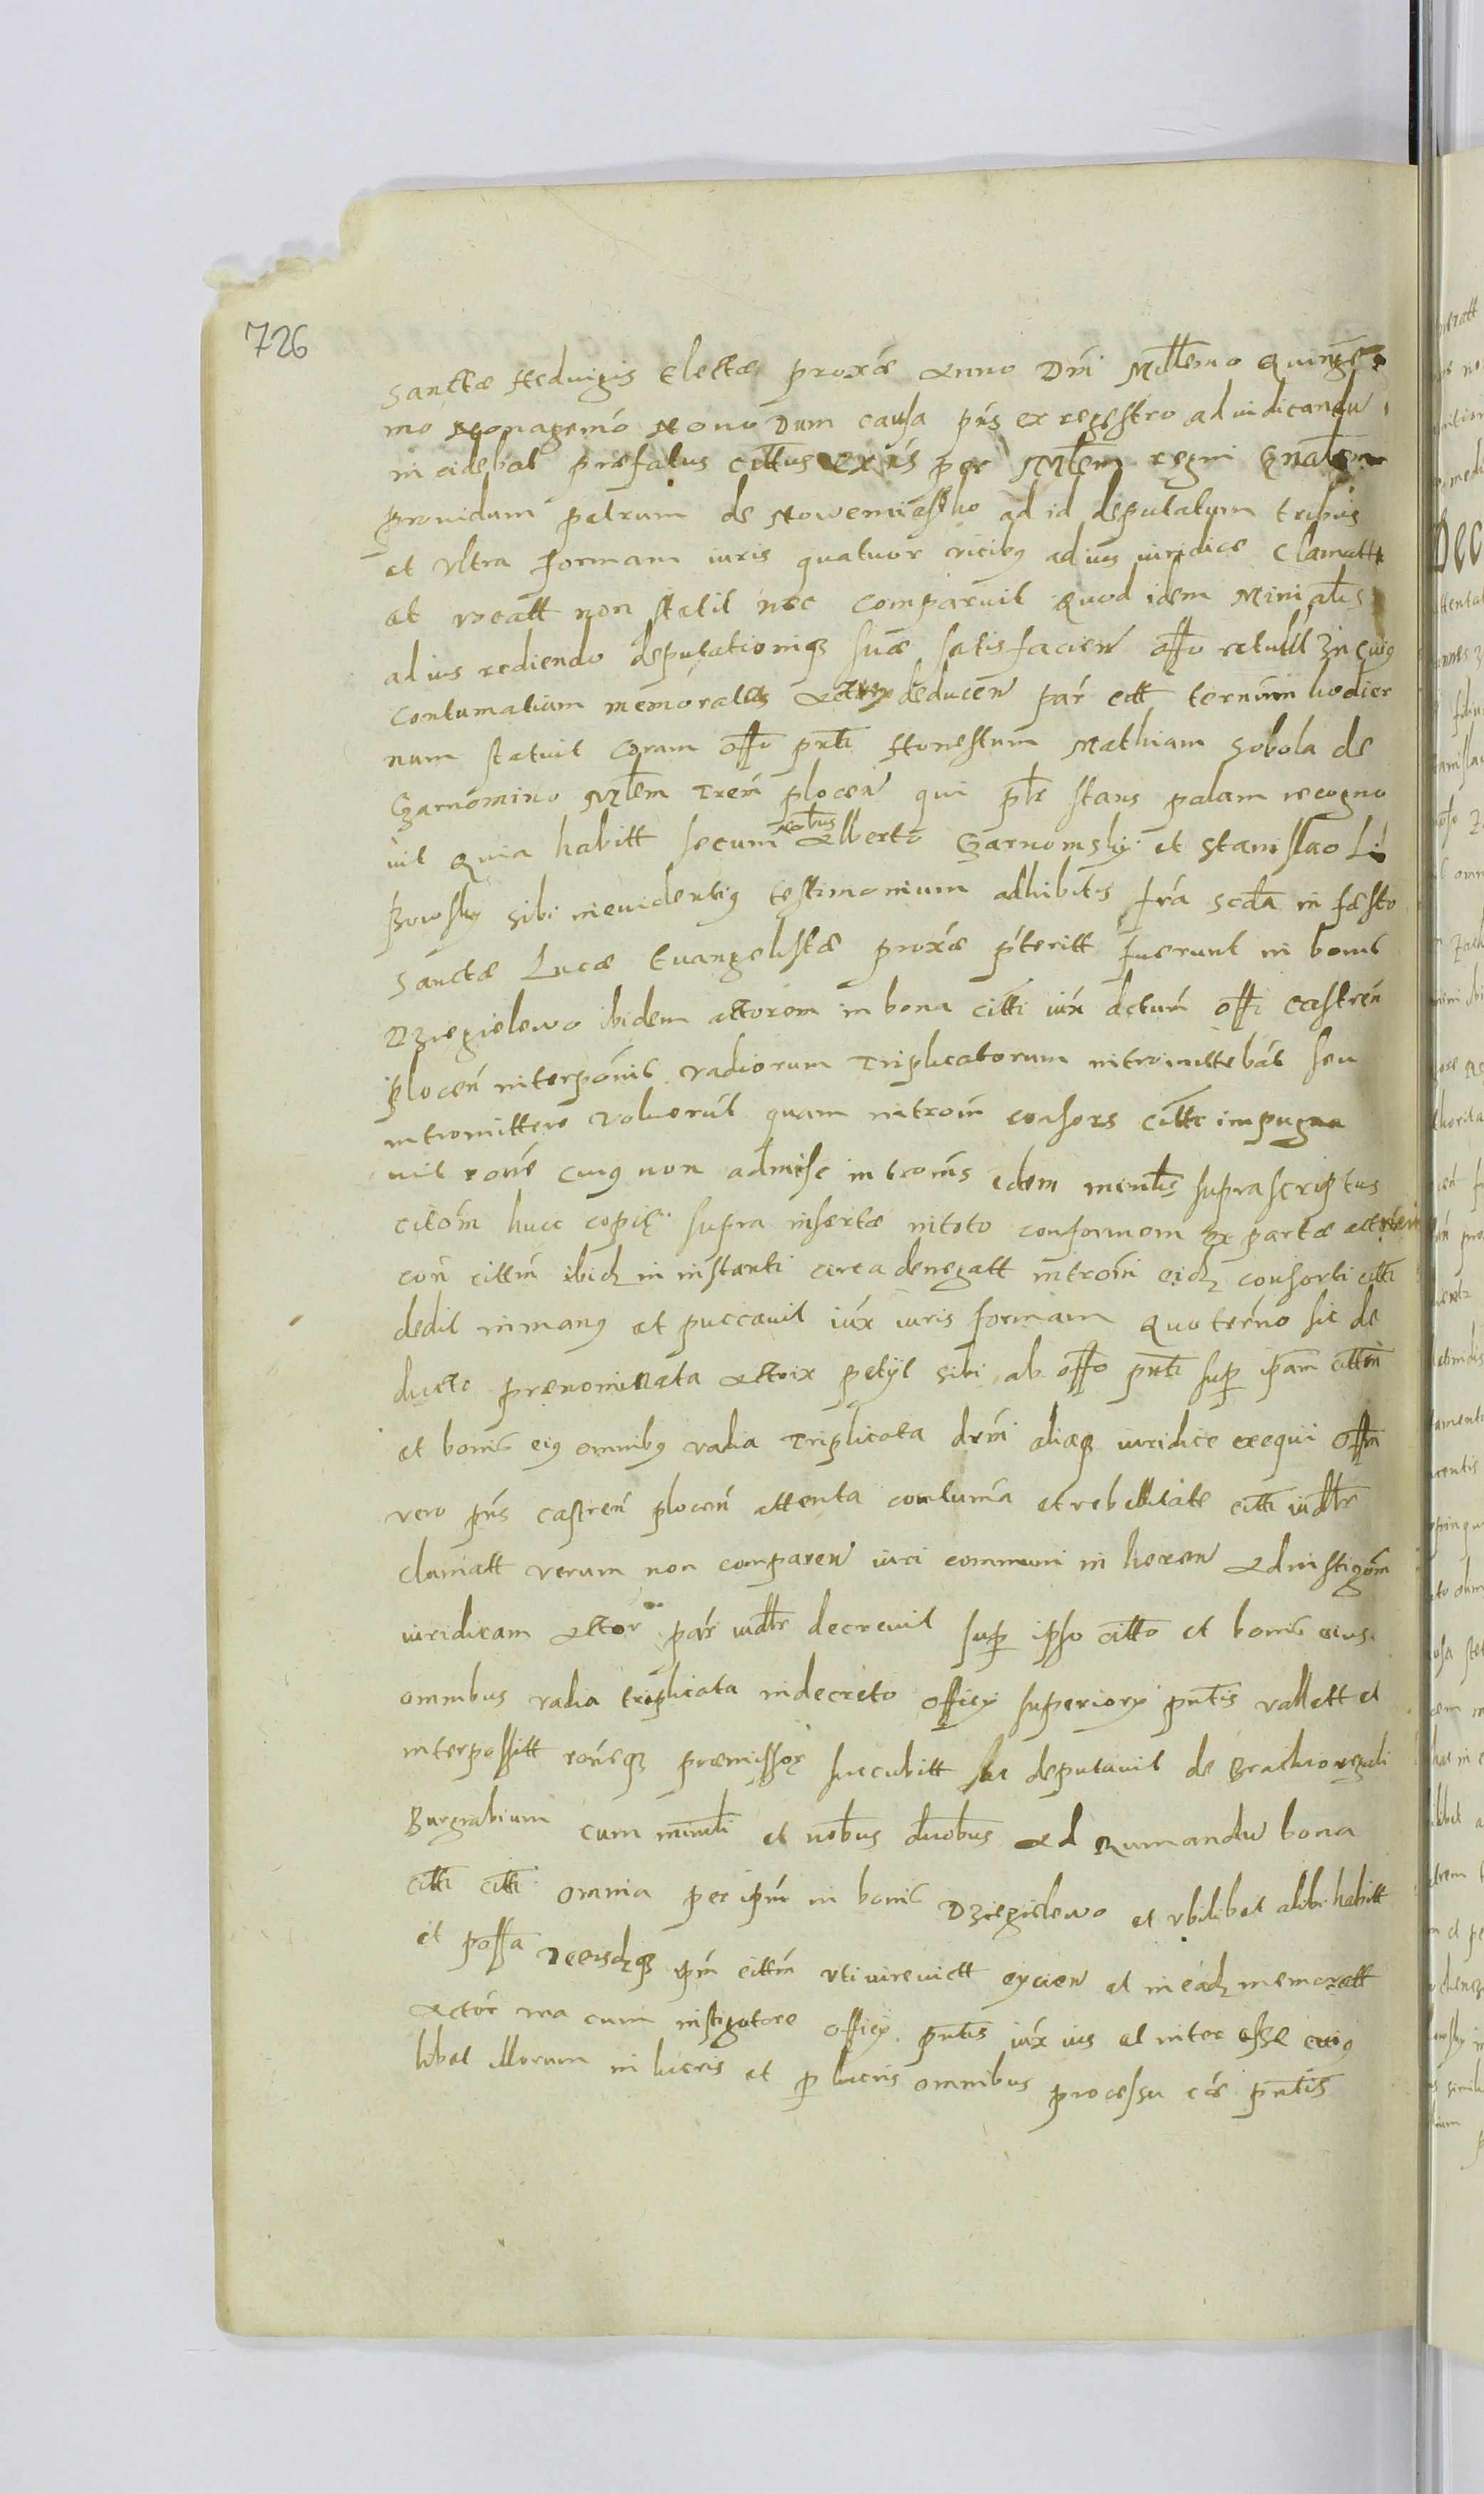 726
Sanctæ Hedvigis Electæ proxæ Anno Dni Millemo Quinge
mo Nonagemo Nono Dum causa pns ex regestro ad iudicandu
incidebat præfatus cittus per Mlem regni Gnalem
prouidum petrum de Nowemiastho ad id deputatum tribus
et vltra formam iuris quatuor vicibꝰ ad ius iuridice clamatt
et vocatt non stetit nec comparuit Quod idem Minialis
ad ius rediendo deputationiqꝫ suæ satisfacien offo retulit In cuiꝰ
contumatiam memorata Actrix deducen par citt ternum hodier
num statuit coram offo pnti Honestum Mathiam Sobola de
Garnomino Mlem Tren plocen qui pltr stans palam recogno
uit Quia habitt secum nobus Alberto Garnomsky et Stanislao Li
Bowsky sibi in euidentiꝰ testimonium adhibitis fra scda in festo
Sanctæ Lucæ Euangelistæ proxæ pteritt fuerunt in bonis
Dziegielewo ibidem attorem in bona citti iux dctum offi castren
plocen interponit vadiorum Triplicatorum intromittebat seu
intromittere voluerut quam introm consors citti impugna
uit rone cuiꝰ non admisse introms idem menlis suprascriptus
citom huic copiæ supra insertæ in toto conformem Ex parte
con cittm ibidꝫ in instanti circa denegatt introm eidꝫ consorti citti
dedit in manꝰ et iux iuris formam Quo terno sic de
ducto prænominata Actrix petyt sibi ab offo pnti sup ipam cittm
et bonis eiꝰ omnibꝰ vadia Triplicata drni aliaqꝫ iuridice exequi Offm
vero pns castren plocen attenta contuma et rebellitate citti iudltr
clamatt verum non comparen iuri communi in heren Ad instigom
iuridicam Actor par iudltr decreuit sup ipso citto et bonis eius
omnibus vadia triplicata in decreto officy superiory pntis vallatt et
interpositt roneqꝫ præmissoꝝ succubitt deputauit de Brachio regali
Burgrabium cum minrli et nobus duobus Ad Rumandu bona
citti citti omnia per ipm in bonis Dziegielewo et vbilibet alibi habitt
et possa ipm cittm vti iureuictt eycien et in eadꝫ memoratt
Actor vna cum instigatore officy pntis iux ius et inter esse cuiꝰ
libet illorum in lucris et p lucris omnibus processu cæ pntis